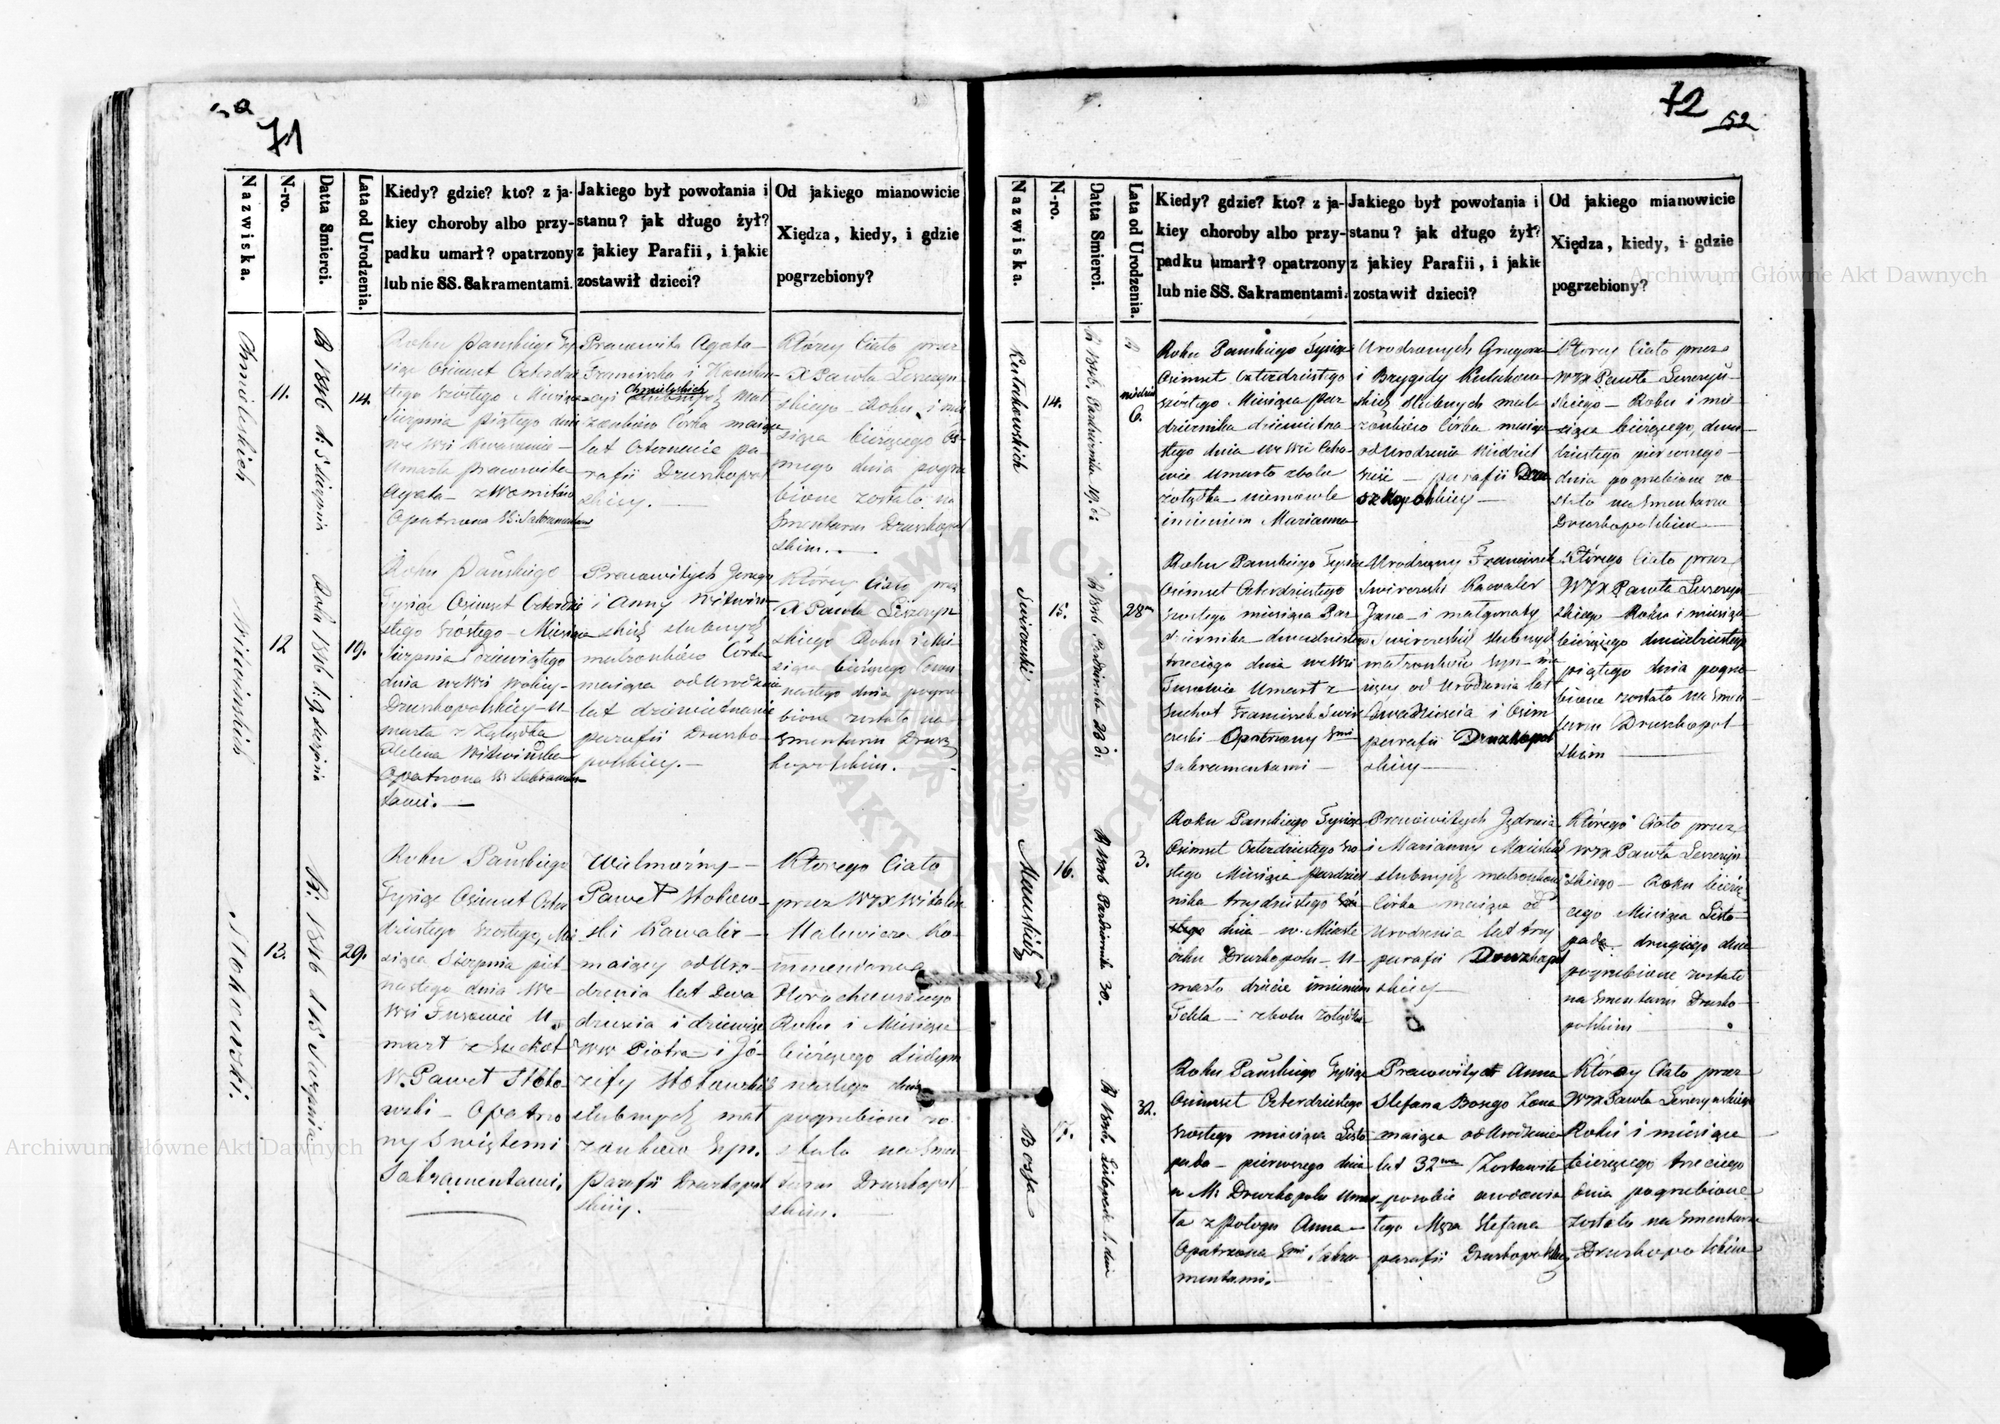 71
72
52
Nazwiska.
N-ro.
Datta Smierci.
Lata od Urodzenia.
Kiedy? gdzie? kto? z ja-
kiey choroby albo przy-
padku umarł? opatrzony
lub nie SS. Sakramentami.
Jakiego był powołania i
stanu? jak długo żył?
z jakiey Parafii, i jakie
zostawił dzieci?
Od jakiego mianowicie
Xiędza, kiedy, i gdzie
pogrzebiony?
Chmieleskich
11.
R 1846 d: 5 Sierpnia
14.
Roku Pańskiego Ty
siąc Osimset Czterdzie
stego Szóstego Miesiąca
Sierpnia piątego dnia
we Wsi
Umarła pracowita
Agata z Womitów
Opatrzona SS. Sakramentami
Pracowita Agata
Franciszka i Konstan
cyi Chmieleskich Mał
żonków Córka maiąca
lat Czternaście pa
rafii Druszkopol
skiey.
Którey Ciało przez
X Pawła Leszczyń
skiego Roku i mie
siąca bieżącego Os
mego dnia pogrze
bione zostało na
Smentarzu Druszkopol
skim.
Witwińskich
12
Roku 1846 d: 9 Sierpnia
19.
Roku Pańskiego
Tysiąc Osimset Czterdzie
stego Szóstego Miesiąca
Sierpnia Dziewiątego
dnia we Wsi Wolicy
Druszkopolskiey U
marła z Żołądka
Helena Witwińska
Opatrzona SS Sakramen
tami.
Pracowitych Jerzego
i Anny Witwiń
skich ślubnych
małżonków Córka
maiąca od Urodzenia
lat dziewietnaście
parafii Druszko
polskiey.
Którey Ciało przez
X Pawła Leszczyń
skiego Roku i Mie
siąca bieżącego
nastego dnia pogrze
bione zostało na
Smentarzu Drusz
kopolskim.
Stokowski.
13.
R: 1846 d 15 Sierpnia
29.
Roku Pańskiego
Tysiąc Osimset Czter
dziestego Szostego, Mie
siąca Sierpnia piet
nastego dnia We
Wsi Tusowie U
marł z Suchot
W. Paweł Stoko
wski Opatrzo
ny Swiętemi
Sakramentami.
Wielmożny
Paweł Stokow
ski Kawaler
maiący od Uro
dzenia lat Dwa
dziescia i dziewięć
WW Piotra i Jó
zefy Stokowskich
ślubnych mał
żonków Syn.
Parafii Druszkopol
skiey.
Ktorego Ciało
przez WJX Witalisa
Malewicza Ko
mmendarza
Horochowskiego
Roku i Miesiąca
bieżącego Siedym
nastego dnia
pogrzebione zo
stało na Smen
tarzu Druszkopol
skim.
Nazwiska.
N-ro.
Datta Smierci.
Lata od Urodzenia.
Kiedy? gdzie? kto? z ja-
kiey choroby albo przy-
padku umarł? opatrzony
lub nie SS. Sakramentami.
Jakiego był powołania i
stanu? jak długo żył?
z jakiey Parafii, i jakie
zostawił dzieci?
Od jakiego mianowicie
Xiędza, kiedy, i gdzie
pogrzebiony?
Kułakowskich
14.
R 1846 Pazdziernika 19 d:
niedziel
6.
Roku Pańskiego Tysiąc
Osimset Czterdziestego
szóstego Miesiąca Paz
dziernika dziewietna
stego dnia we Wsi
Umarło z bolu
żołądka niemowle
imieniem Marianna
Urodzonych Grzegorza
i Brygidy Kułakow
skich ślubnych mał
żonków Córka maiąca
od Urodzenia Niedziel
parafii Dru
szkopolskiey
Ktorey Ciało przez
WJX Pawła Leszczyń
skiego Roku i mie
siąca bieżącego, dwu
dziestego pierwszego
dnia pogrzebione zo
stało na Smentarzu
Druszkopolskim
Swirowski
15.
R 1846 Pazdziernika 23 d:
28
Roku Pańskiego Tysiąc
Osimset Czterdziestego
Szostego miesiąca Paz
dziernika dwudziestego
trzeciego dnia we Wsi
Tusowie Umarł z
Suchot Franciszek Swiro
wski Opatrzony Smi
Sakramentami
Urodzony Franciszek
Swirowski Kawaler
Jana i małgorzaty
Swirowskich ślubnych
małżonków Syn ma
iący od Urodzenia lat
Dwadziescia i Osim
parafii Druszkopol
skiey
Którego Ciało przez
WJX Pawła Leszczyń
skiego Roku i miesiąca
bieżącego dwudziestego
piątego dnia pogrze
bione zostało na Smen
tarzu Druszkopol
skim
16.
R 1846 Pazdziernika 30.
3.
Roku Pańskiego Tysiąc
Osimset Czterdziestego Szo
stego Miesiąca pazdzier
nika trzydziestego
dnia w Miaste
czku Druszkopolu U
marło dziécie imieniem
Tekla z bolu żołądka
Pracowitych Jędrzeia
i Marianny
ślubnych małżonków
Córka maiąca od
Urodzenia lat trzy
parafii Druszkopol
skiey
Którego Ciało przez
WJX Pawła Leszczyń
skiego Roku bieżą
cego Miesiąca Listo
pada drugiego dnia
pogrzebione zostało
na Smentarzu Druszko
polskim
Bosza
17.
R 1846 Listopada 1. dnia
32.
Roku Pańskiego Tysiąc
Osimset Czterdziestego
Szostego miesiąca Listo
pada pierwszego dnia
w M: Druszkopolu Umar
ła z Pologu Anna
Opatrzona Smi Sakra
mentami.
Pracowitych Anna
Stefana Bosego Zona
maiąca od Urodzenia
lat 32 Zostawiła
po sobie owdowia
łego Męża Stefana
parafii Druszkopolskiey
Którey Ciało przez
WJX Pawła Leszczyńskiego
Roku i miesiąca
bieżącego trzeciego
dnia pogrzebione
Zostało na Smentarzu
Druszkopolskim
Archiwum Główne Akt Dawnych
Archiwum Główne Akt Dawnych